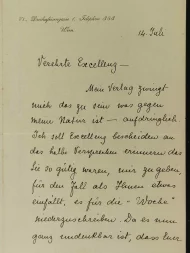 14 Juli
Wien
Verehrte Excellenz —
Mein Verlag zwingt
mich das zu sein was gegen
meine Natur ist — aufdringlich
Ich soll Excellenz bescheiden an
das halbe Versprechen erinnern das
Sie so gütig waren, mir zu geben,
für den Fall als Ihnen etwas
einfällt, es für die „Woche"
niederzuschreiben. Da es nun
ganz undenkbar ist, dass